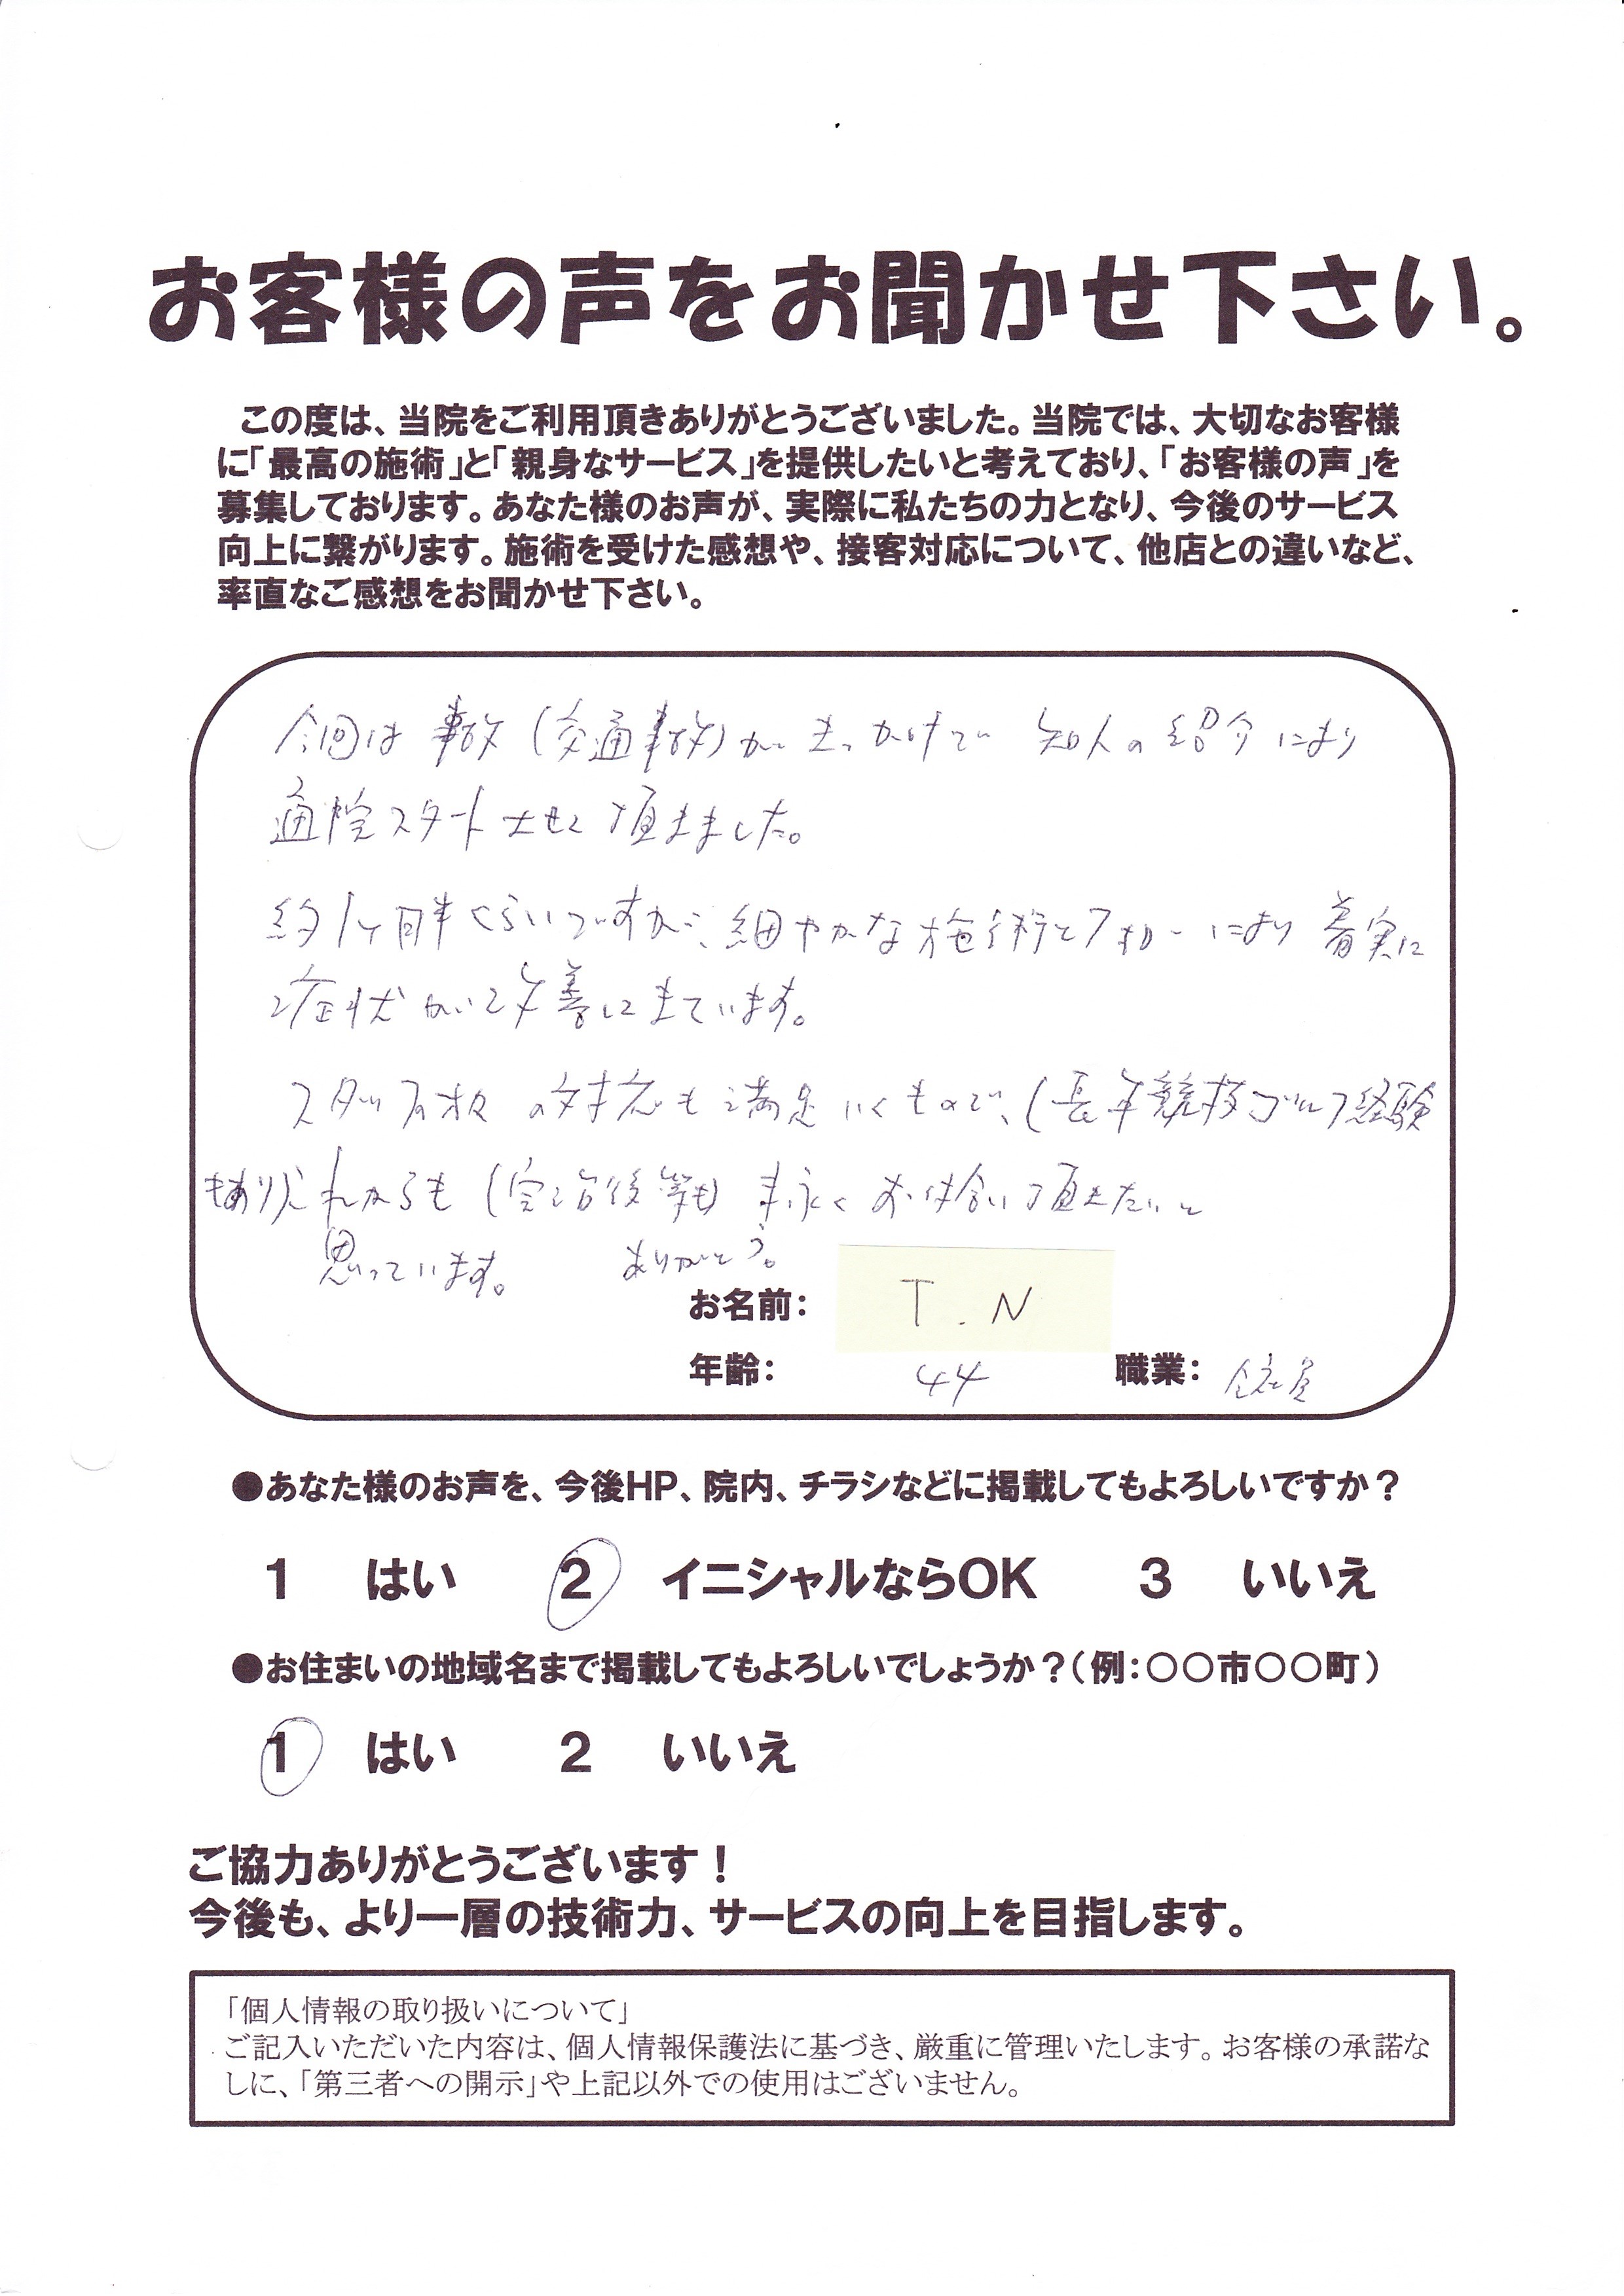 お客様の声をお聞かせ下さい。
この度は、当院をご利用頂きありがとうございました。当院では、大切なお客様
に「最高の施術」と「親身なサービス」を提供したいと考えており、「お客様の声」を
募集しております。あなた様のお声が、実際に私たちの力となり、今後のサービス
向上に繋がります。施術を受けた感想や、接客対応について、他店との違いなど、
率直なご感想をお聞かせ下さい。
今回は事故(交通事故)がきっかけで知人の紹介により
通院スタートさせて頂きました。
約1ヶ月半くらいですが、細やかな施術とフォローにより着実に
症状が改善してきています。
スタッフの方々の対応も満足いくもので、(長年競技ゴルフ経験
もあり)これからも(完治後等も)末永くお付合い頂きたいと
思っています。 ありがとう。
お名前: T.N
年齢: 44 職業: 会社員
●あなた様のお声を、今後HP、院内、チラシなどに掲載してもよろしいですか?
1 はい 2 イニシャルならOK 3 いいえ
●お住まいの地域名まで掲載してもよろしいでしょうか?(例:〇〇市〇〇町)
1 はい 2 いいえ
ご協力ありがとうございます!
今後も、より一層の技術力、サービスの向上を目指します。
「個人情報の取り扱いについて」
ご記入いただいた内容は、個人情報保護法に基づき、厳重に管理いたします。お客様の承諾な
しに、「第三者への開示」や上記以外での使用はございません。